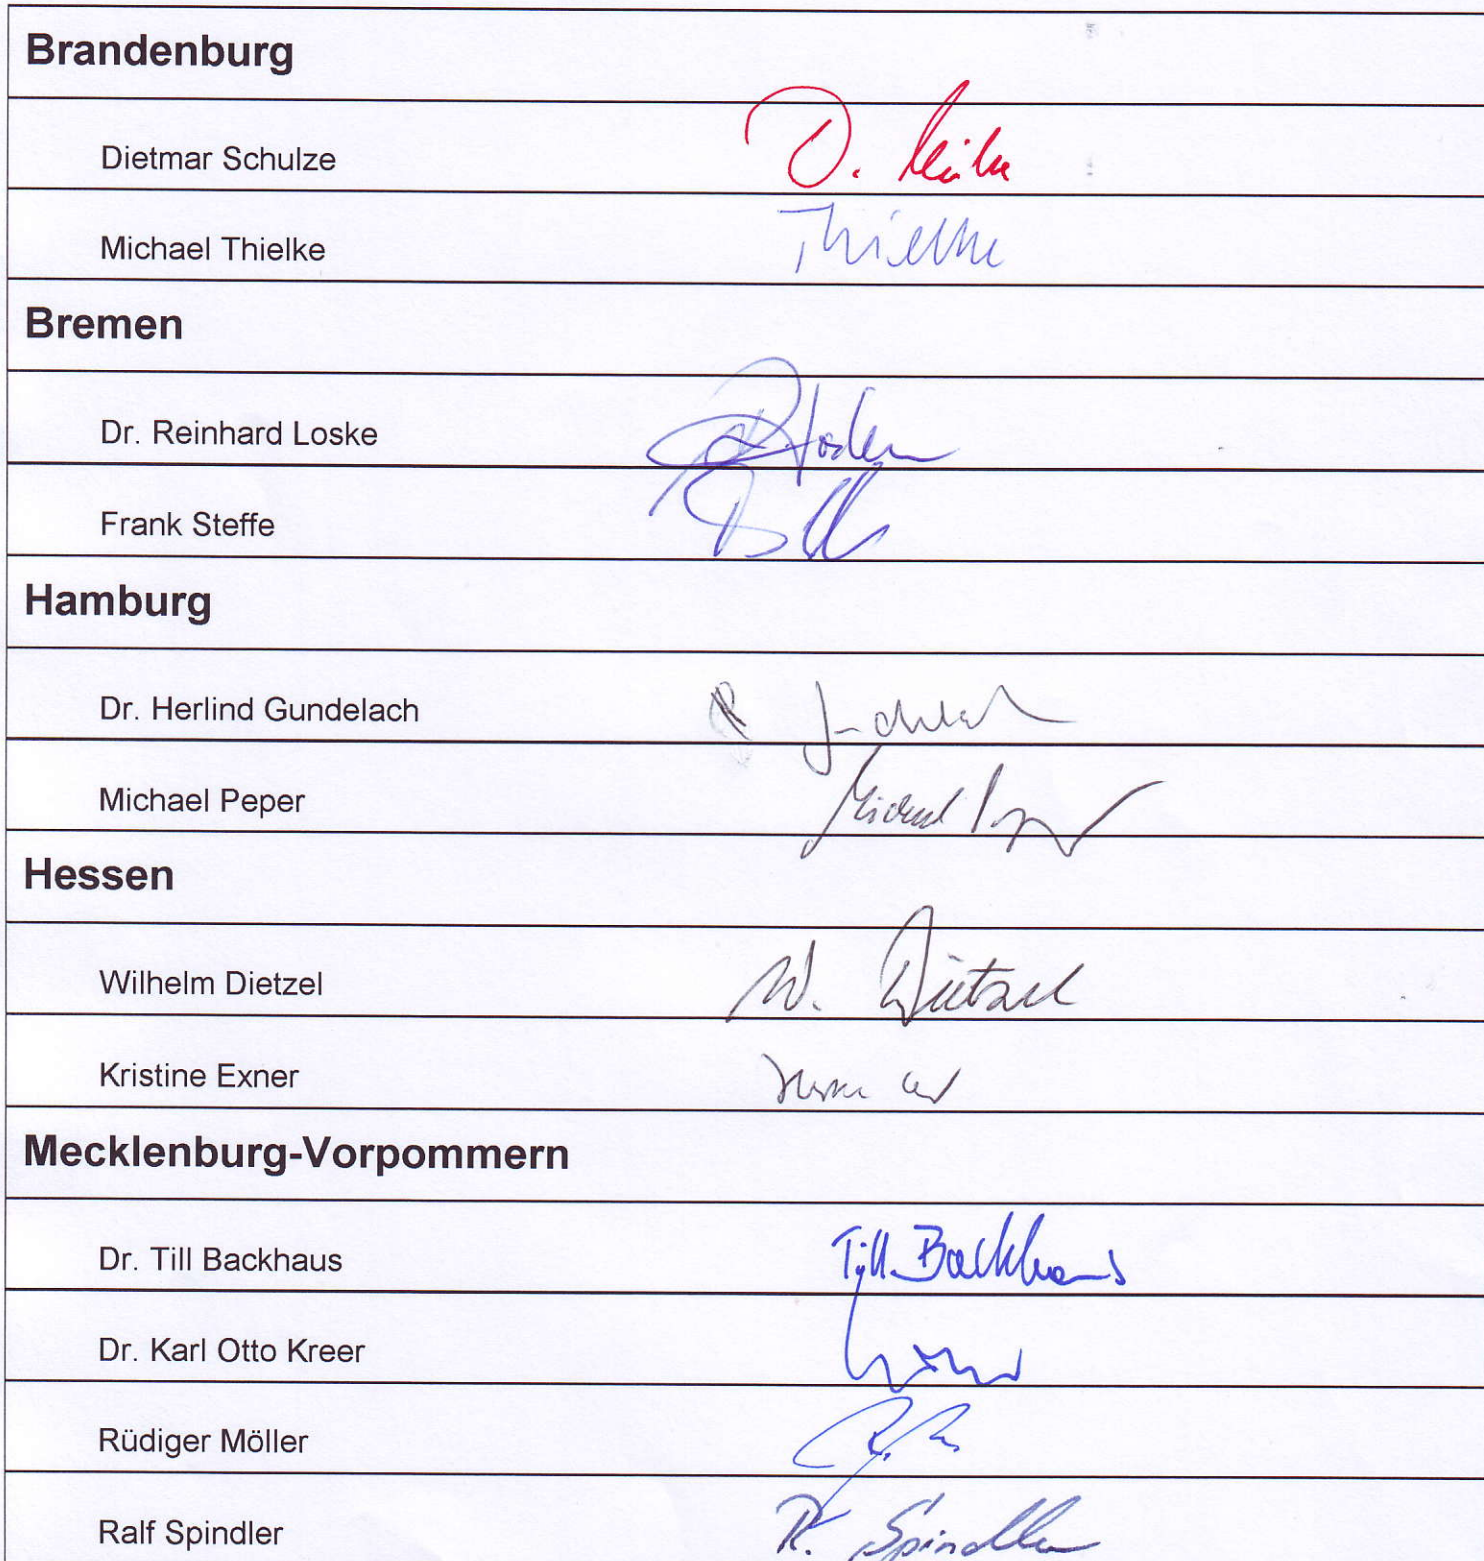 Brandenburg
Dietmar Schulze D.
Michael Thielke Thielke
Bremen
Dr. Reinhard Loske
Frank Steffe
Hamburg
Dr. Herlind Gundelach
Michael Peper Michael
Hessen
Wilhelm Dietzel W. Dietzel
Kristine Exner
Mecklenburg-Vorpommern
Dr. Till Backhaus Till Backhaus
Dr. Karl Otto Kreer
Rüdiger Möller
Ralf Spindler R. Spindler